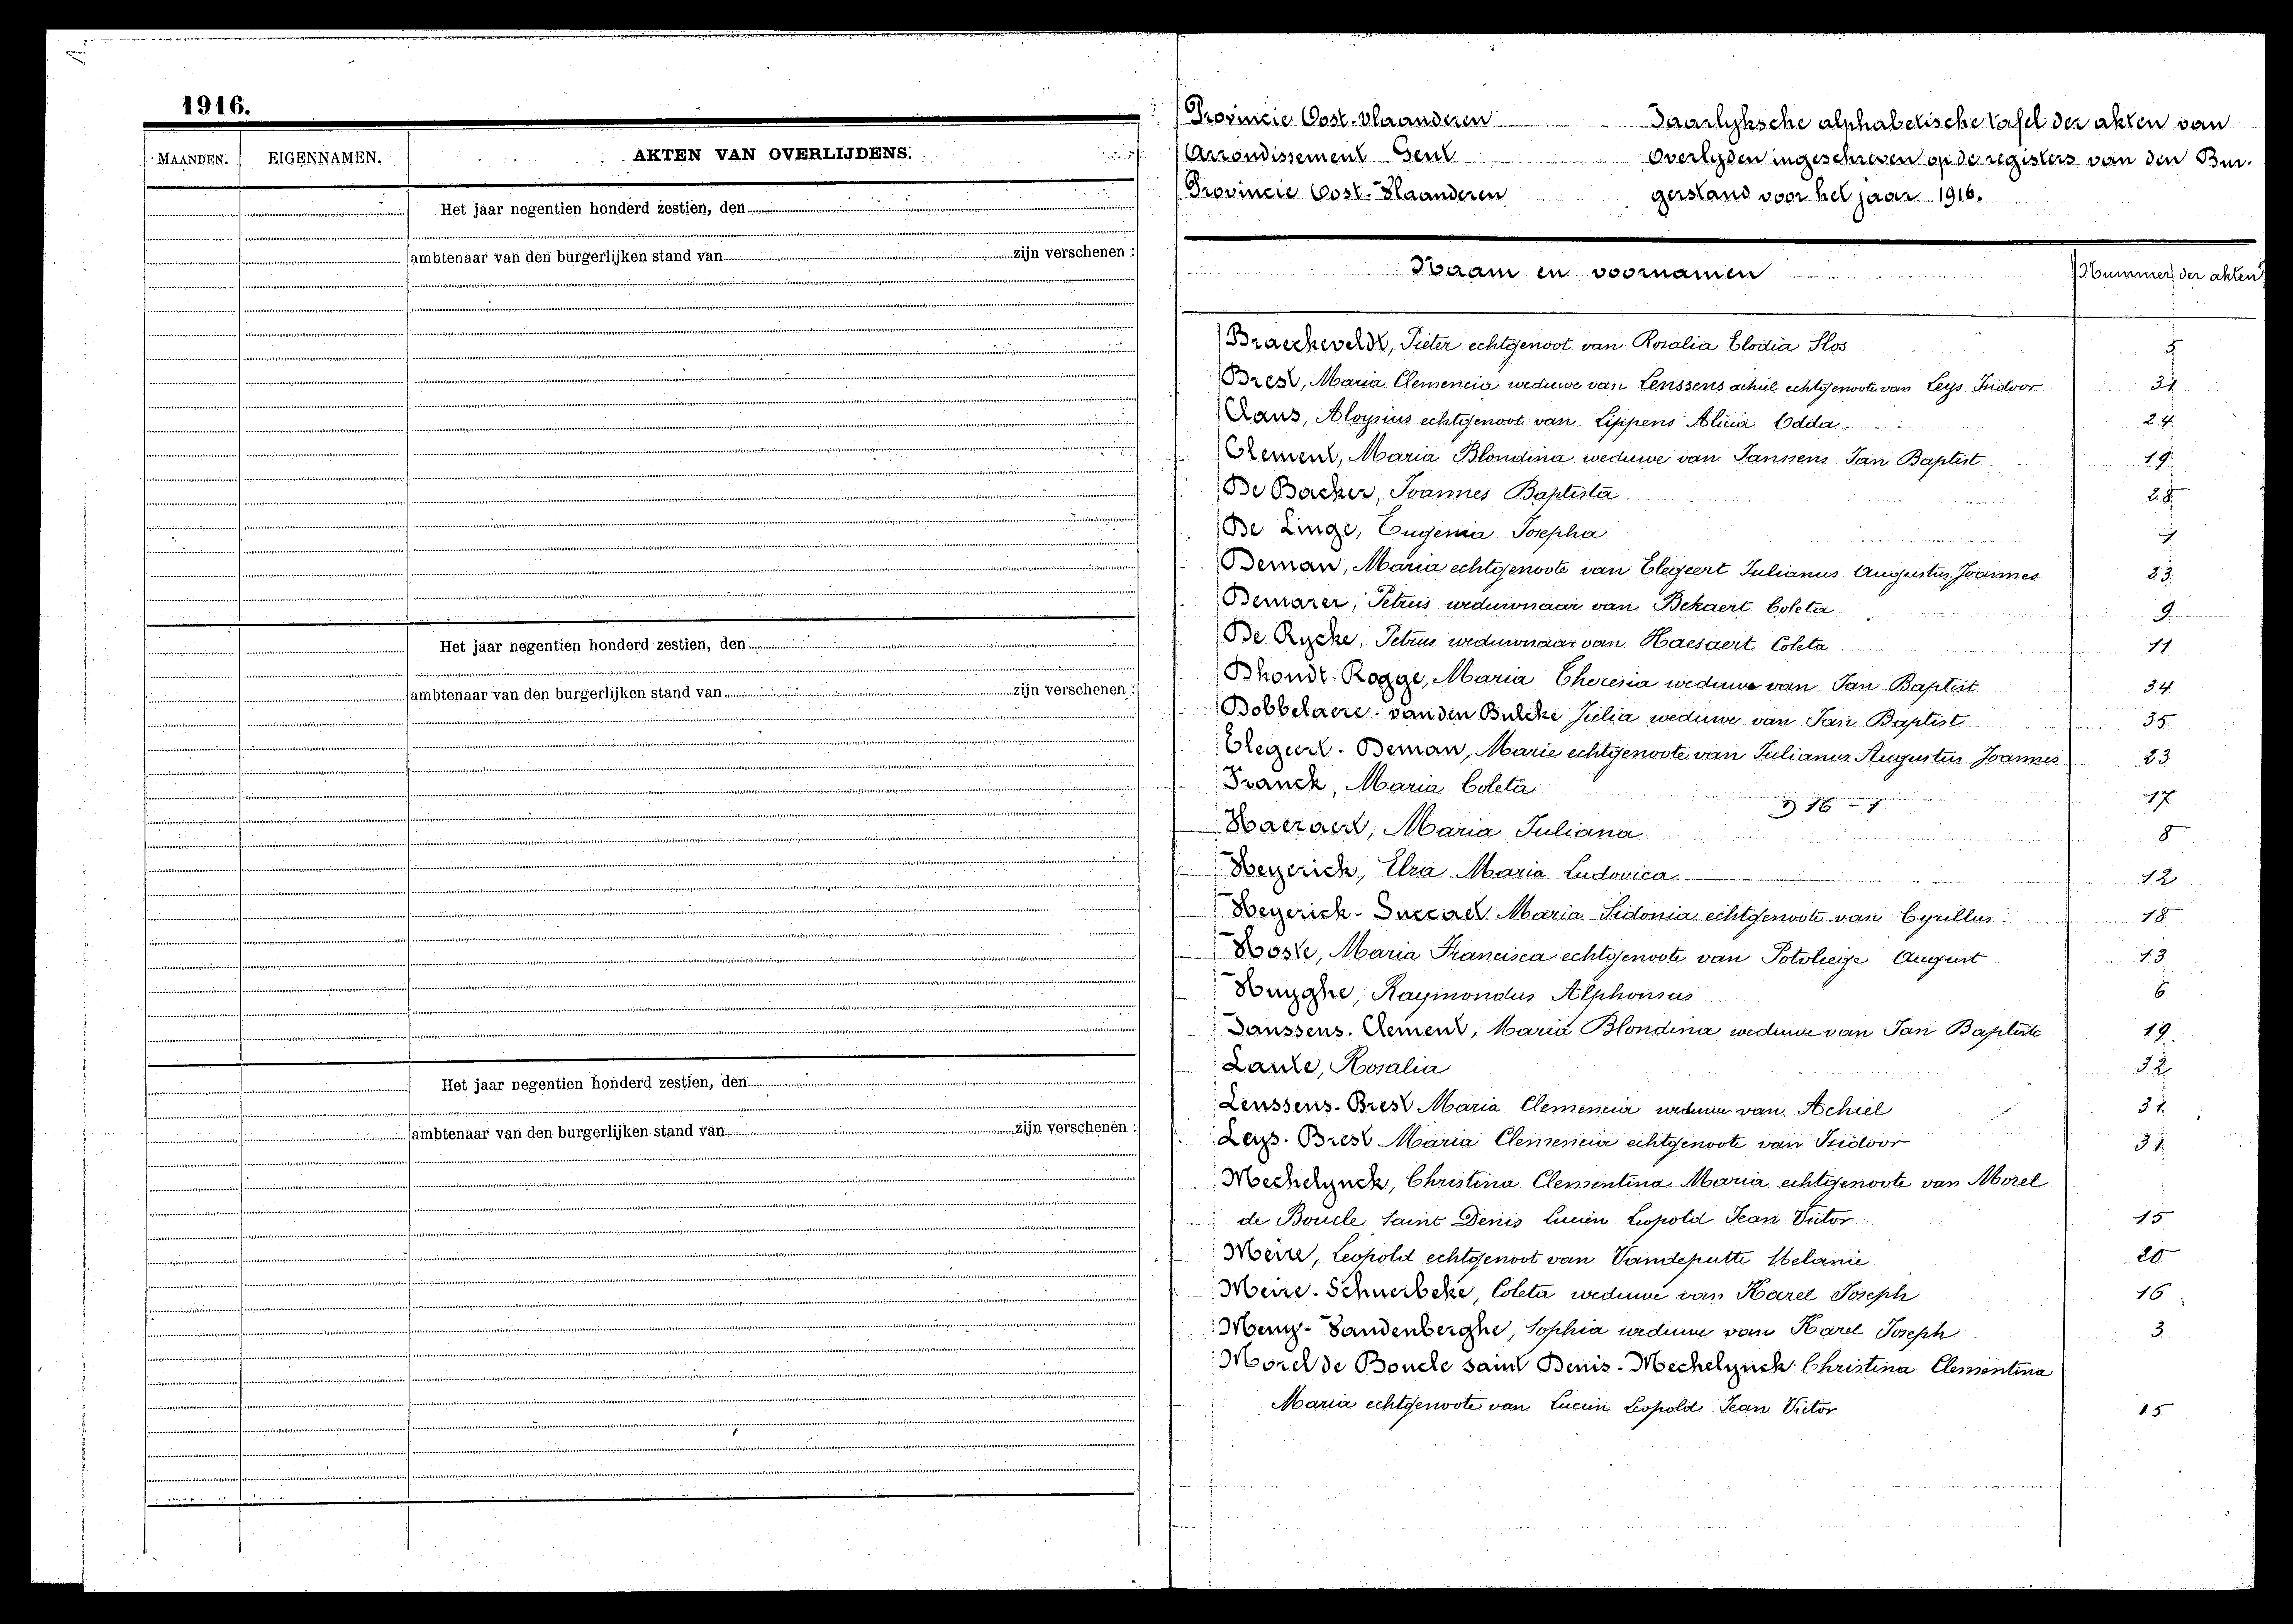 1916.
MAANDEN. EIGENNAMEN. AKTEN VAN OVERLIJDENS.
Het jaar negentien honderd zestien, den
ambtenaar van den burgerlijken stand van zijn verschenen :
Het jaar negentien honderd zestien, den
ambtenaar van den burgerlijken stand van zijn verschenen :
Het jaar negentien honderd zestien, den
ambtenaar van den burgerlijken stand van zijn verschenen :
Provincie Oost-Vlaanderen
Arrondissement Gent
Provincie Oost-Vlaanderen
Jaarlyksche alphabetische tafel der akten van
Overlyden ingeschreven op de registers van den Bur-
gerstand voor het jaar 1916.
Naam en voornamen Nummer der akten
Braeckeveldt, Pieter echtgenoot van Rosalia Clodia Slos 5
Brest, Maria Clemencia weduwe van Lenssens achiel echtgenoote van Leys Isidoor 31
Claus, Aloysius echtgenoot van Lippens Alicia Odda 24
Clement, Maria Blondina weduwe van Janssens Jan Baptist 19
De Backer, Joannes Baptista 28
De Linge, Eugenia Josepha
Deman, Maria echtgenoote van Elegeert Julianus Augustus Joannes 23
Petrus weduwnaar van Bekaert Coleta 9
De Rycke, Petrus weduwnaar van Haesaert Coleta 11
Dhondt-Rogge, Maria Theresia weduwe van Jan Baptist 34
Dobbelaere-vanden Bulcke Julia weduwe van Jan Baptist 35
Elegeert-Deman, Marie echtgenoote van Julianus Augustus Joannes 23
Franck, Maria Coleta 17
Haezaert, Maria Juliana 8
Heyerick, Elza Maria Ludovica 12
Heyerick- Maria Sidonia echtgenoote van Cyrillus 18
Hoste, Maria Francisca echtgenoote van Potvliege August 13
Huyghe, Raymondus Alphonsus 6
Janssens-Clement, Maria Blondina weduwe van Jan Baptiste 19
Laute, Rosalia 32
Lenssens-Brest Maria Clemencia weduwe van Achiel 31
Leys-Brest Maria Clemencia echtgenoote van Isidoor 31
Mechelynck, Christina Clementina Maria echtgenoote van Morel
de Boucle Saint Denis Lucien Leopold Jean Victor 15
Meire, Leopold echtgenoot van Vandeputte Melanie 20
Meire-Schuerbeke, Coleta weduwe van Karel Joseph 16
Meny-Vandenberghe, Sophia weduwe van Karel Joseph 3
Morel de Boucle saint Denis-Mechelynck Christina Clementina
Maria echtgenoote van Lucien Leopold Jean Victor 15